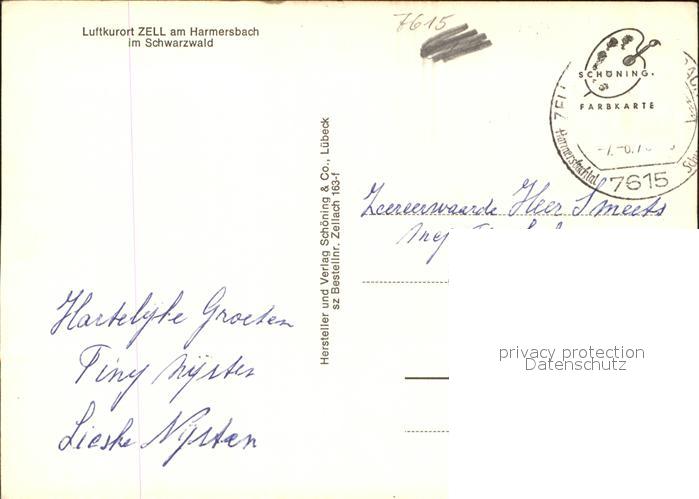 Luftkurort ZELL am Harmersbach
im Schwarzwald
7615
SCHÖNING
FARBKARTE
ZELL
Harmersbachtal
7615
Hersteller und Verlag Schöning & Co., Lübeck
sz Bestellnr. Zellach 163-f
Zeereerwaarde Heer Smeets
Hartelijke Groeten
Tiny Nijsten
Lieske Nijsten
privacy protection
Datenschutz